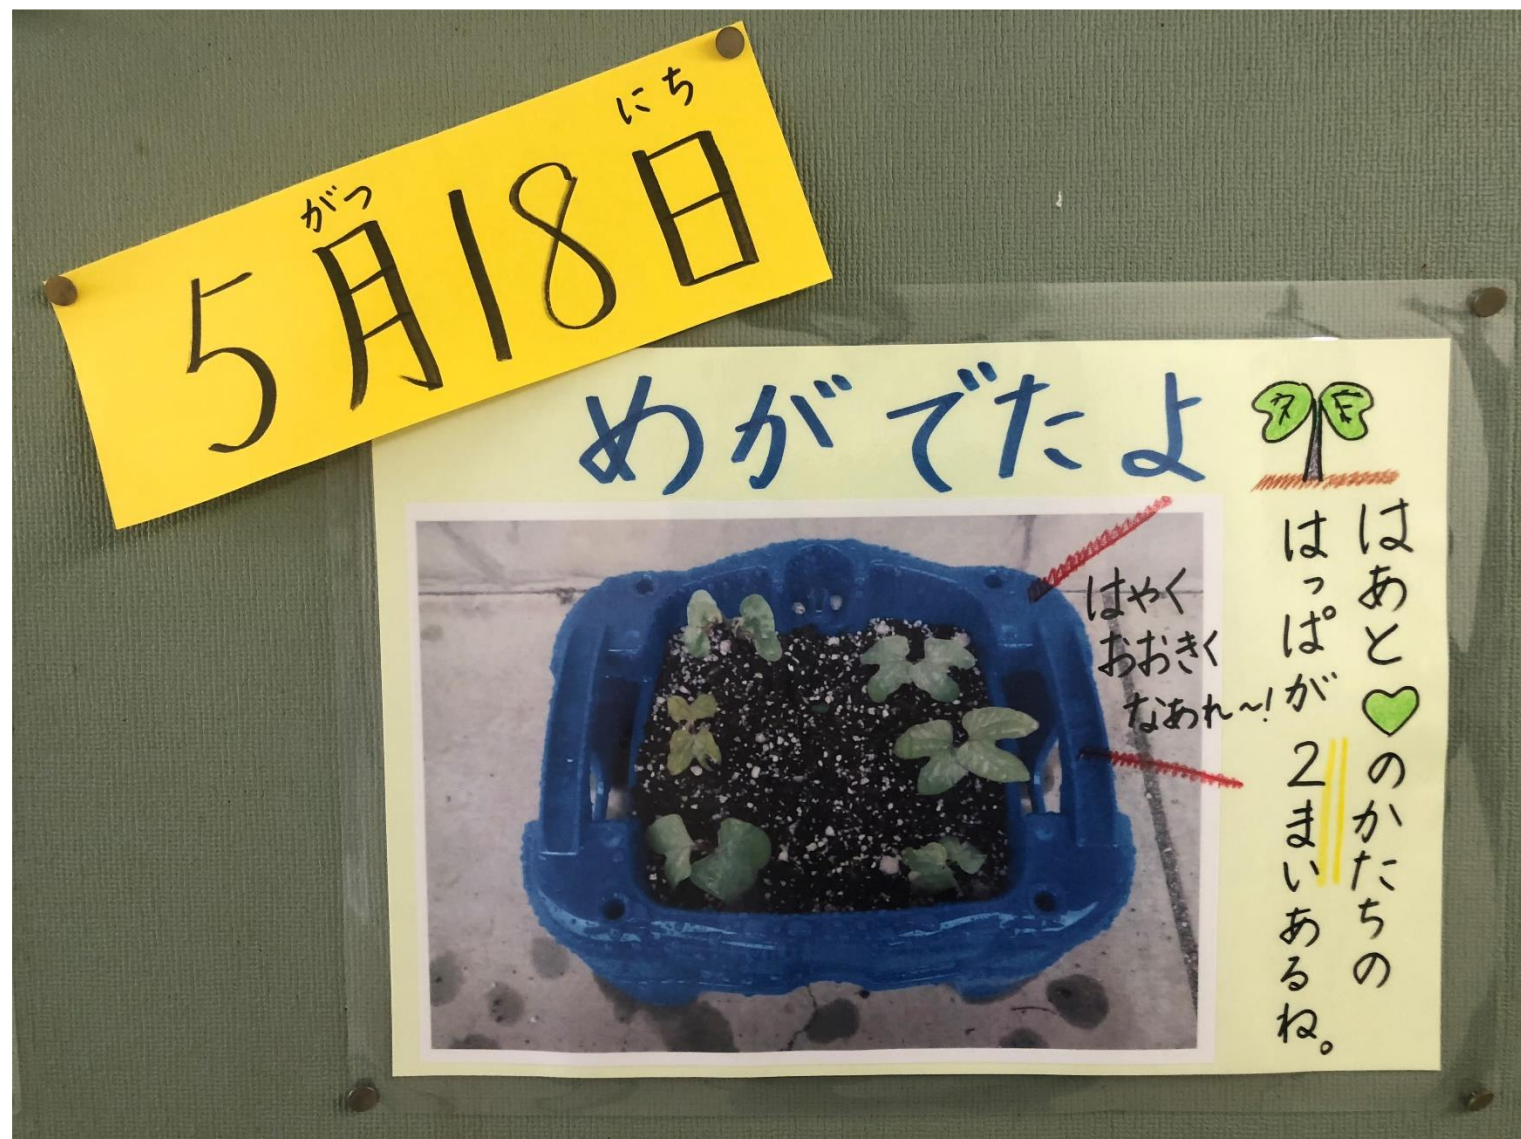 にち
がつ
5月18日
めがでたよ
はあと♥のかたちの
はっぱが2まいあるね。
はやく
おおきく
なあれ～!